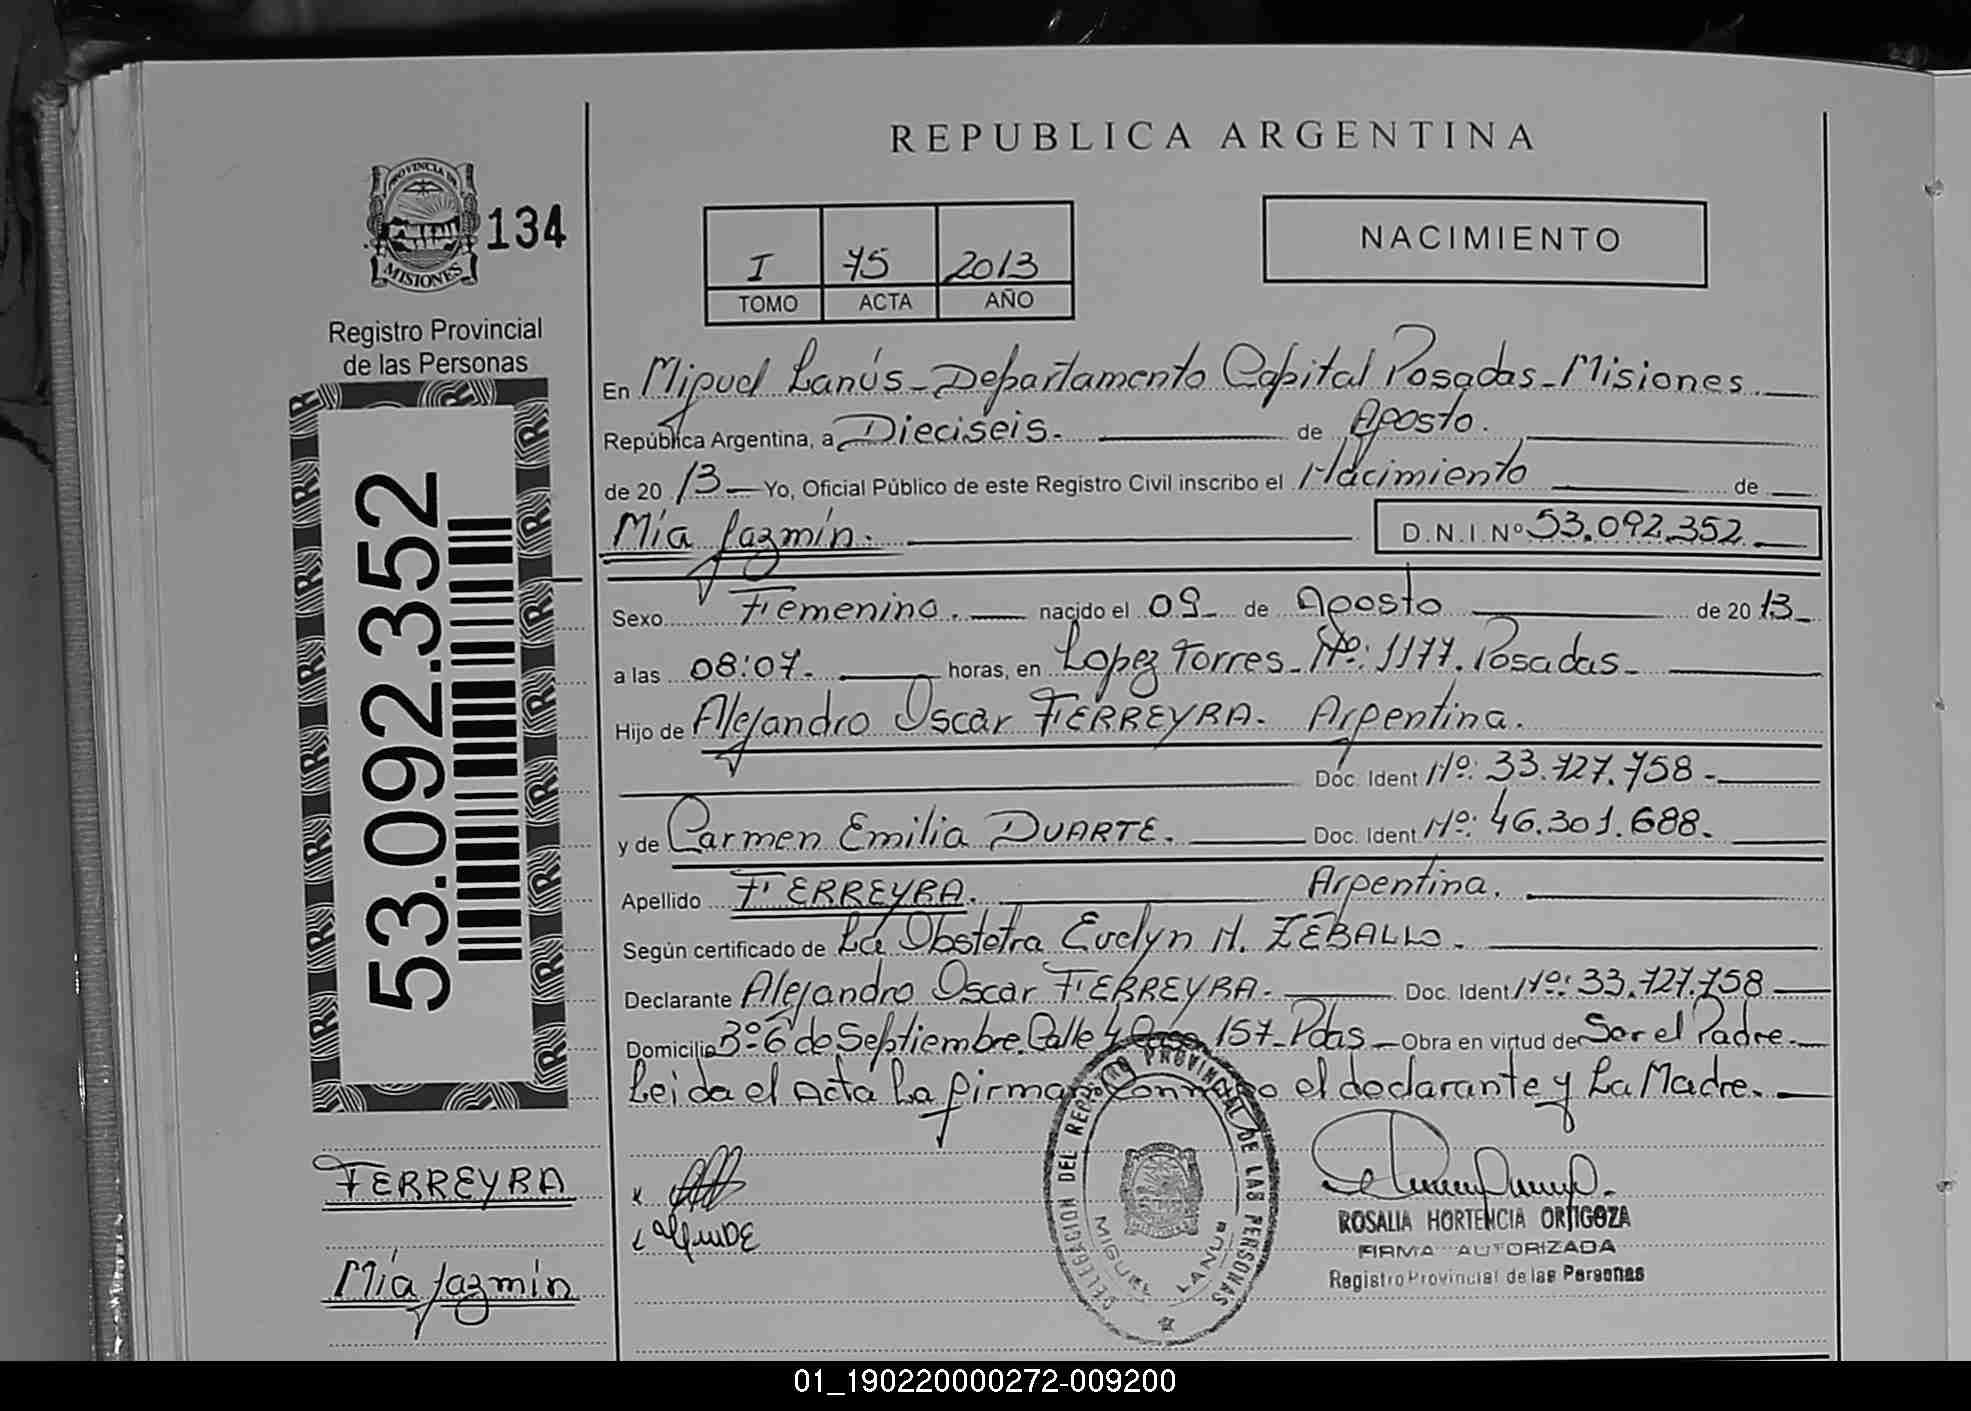 REPUBLICA ARGENTINA
PROVINCIA DE
MISIONES
134
I 75 2013
TOMO ACTA AÑO
NACIMIENTO
Registro Provincial
de las Personas
53.092.352
En Miguel Lanús - Departamento Capital Posadas - Misiones.
República Argentina, a Dieciseis. de Agosto.
de 20 13 Yo, Oficial Público de este Registro Civil inscribo el Nacimiento de
Mía Jazmín.
D.N.I. Nº 53.092.352
Sexo Femenino. nacido el 09 de Agosto de 20 13
a las 08:07. horas, en Lopez Torres - Nº: 1177. Posadas -
Hijo de Alejandro Oscar FERREYRA. Argentina.
Doc. Ident Nº: 33.727.758 -
y de Carmen Emilia DUARTE. Doc. Ident. Nº: 46.301.688.
Apellido FERREYRA. Argentina.
Según certificado de La Obstetra Evelyn N. ZEBALLO.
Declarante Alejandro Oscar FERREYRA. Doc. Ident Nº: 33.727.758
Domicilio 3º 6 de Septiembre. Calle 4 Casa 157 - Pdas - Obra en virtud de Ser el Padre.
Leida el Acta La firma Conmigo el declarante y La Madre.
FERREYRA
Mía Jazmín
DELEGACION DEL REGISTRO PROVINCIAL DE LAS PERSONAS
MIGUEL LANUS
ROSALIA HORTENCIA ORTIGOZA
FIRMA AUTORIZADA
Registro Provincial de las Personas
01_190220000272-009200